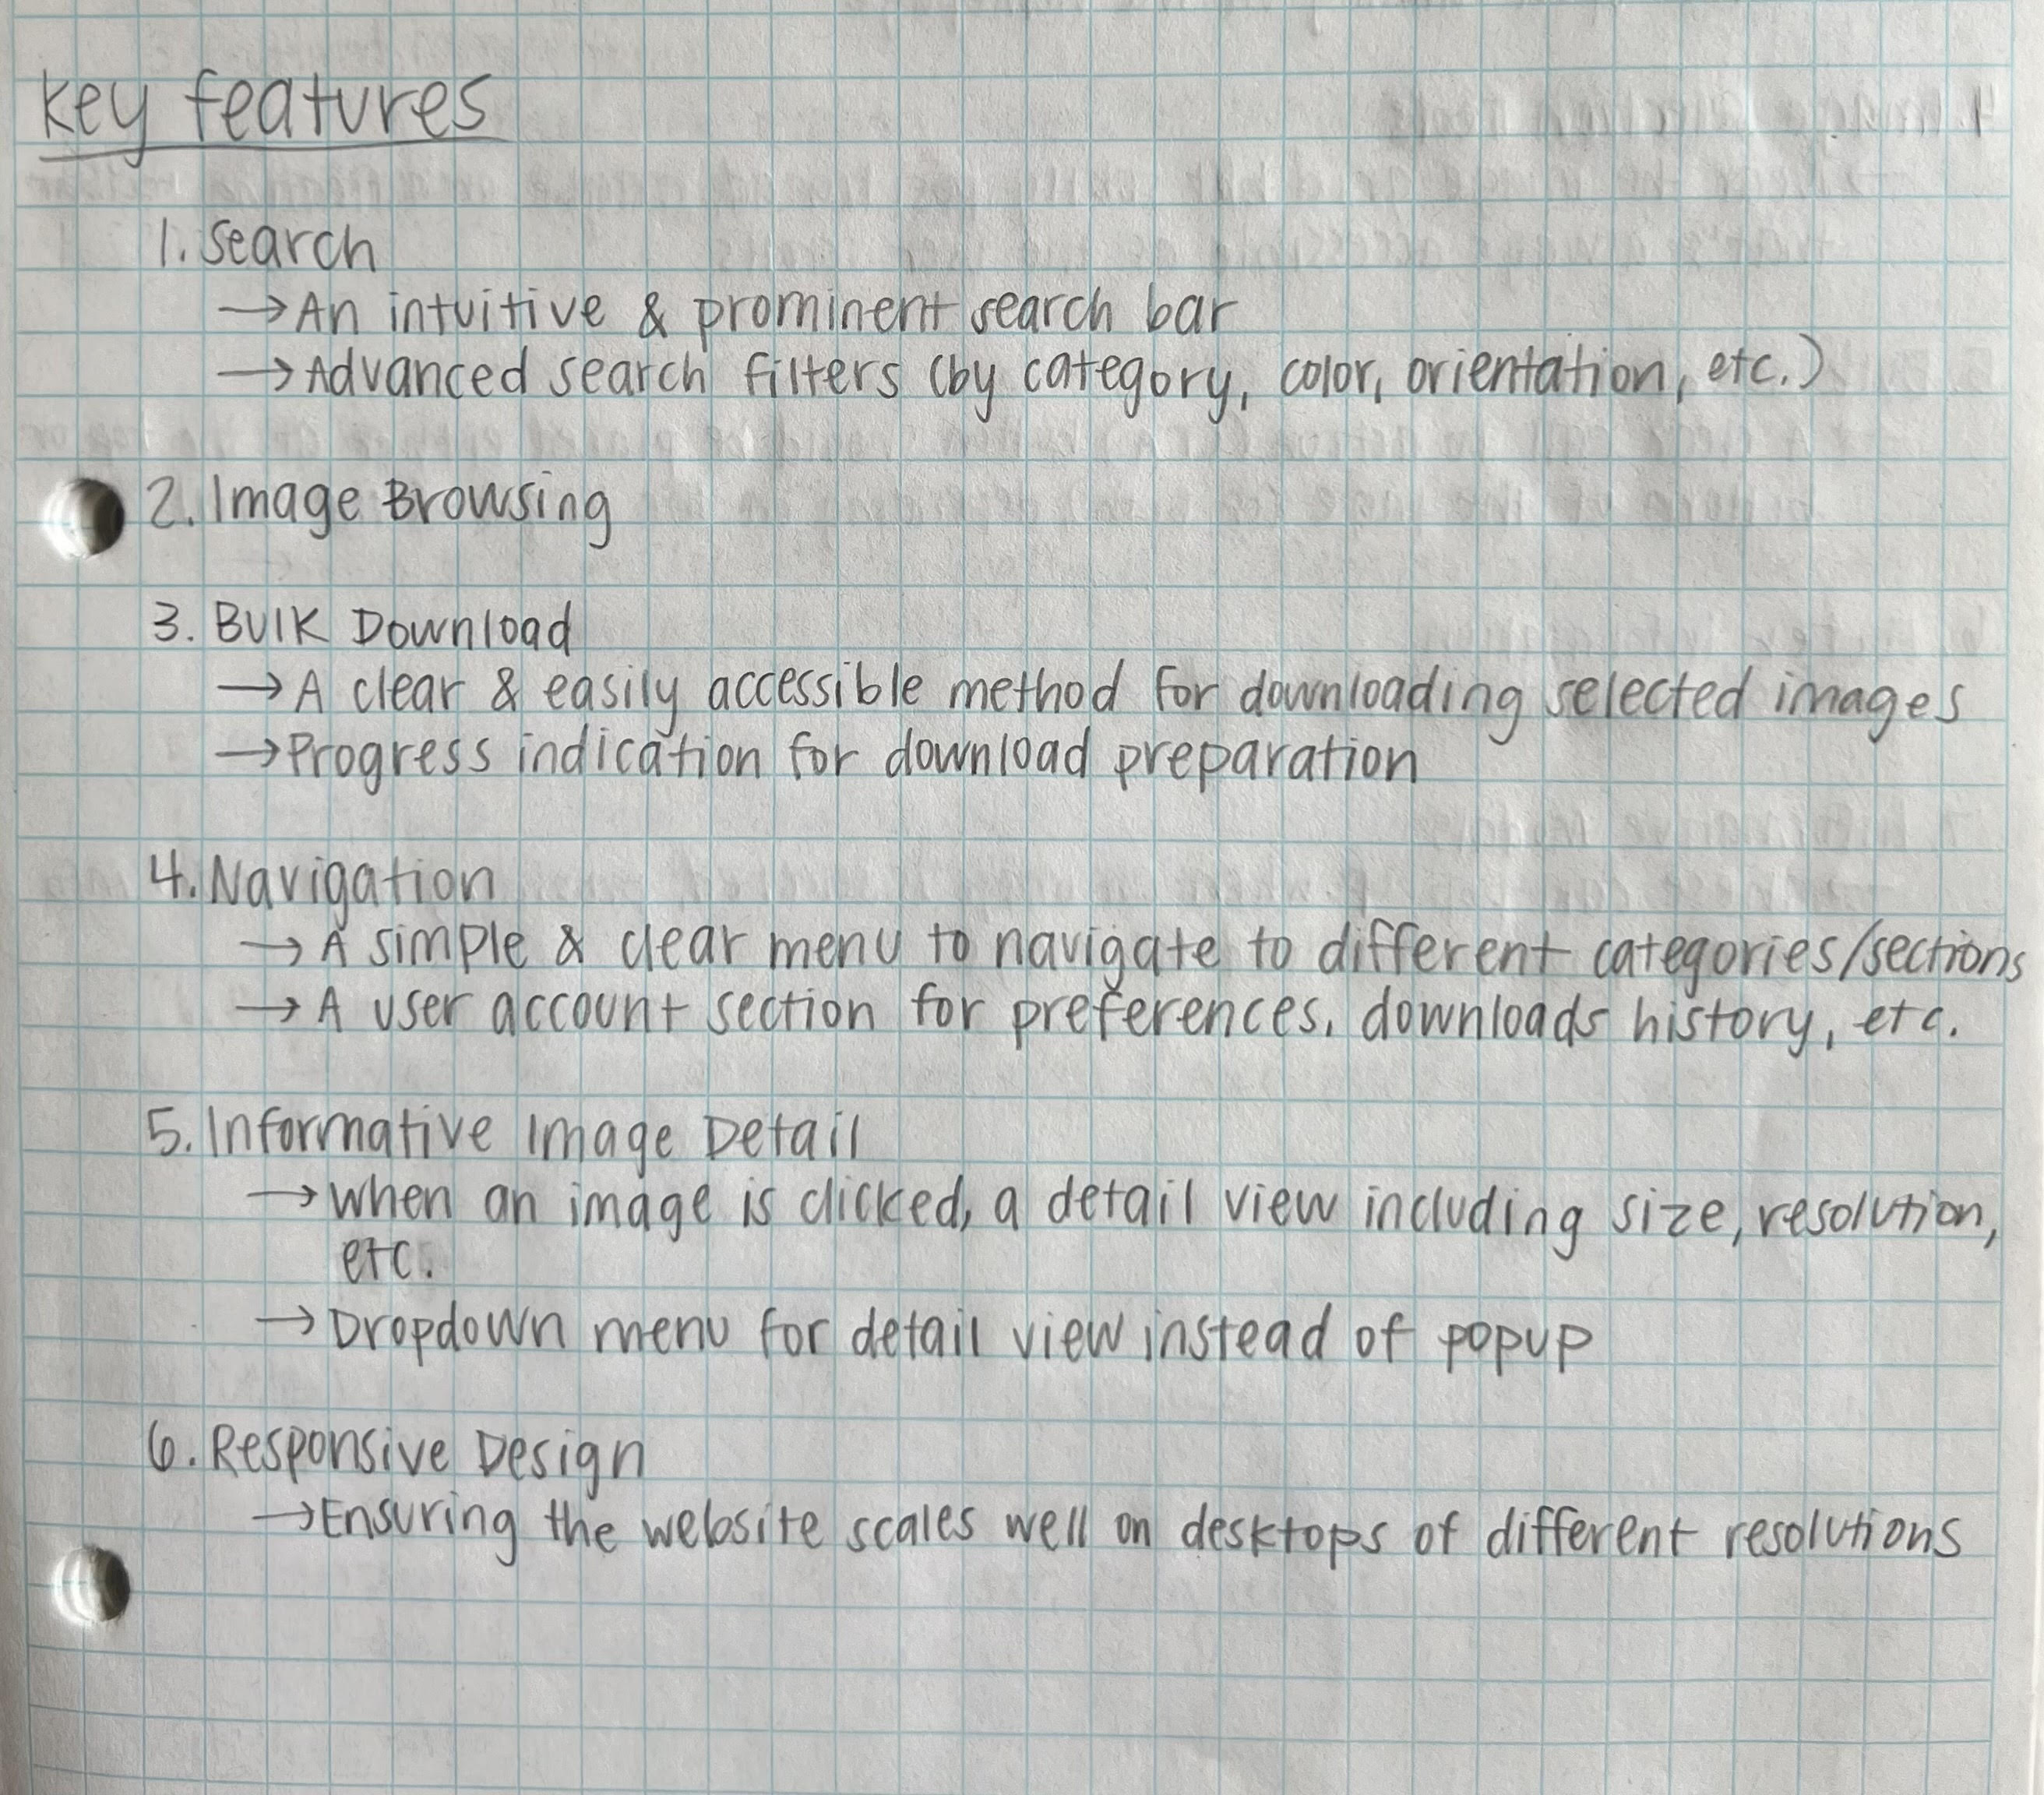 Key features
1. Search
→ An intuitive & prominent search bar
→ Advanced search filters (by category, color, orientation, etc.)
2. Image Browsing
3. Bulk Download
→ A clear & easily accessible method for downloading selected images
→ Progress indication for download preparation
4. Navigation
→ A simple & clear menu to navigate to different categories/sections
→ A user account section for preferences, downloads history, etc.
5. Informative Image Detail
→ When an image is clicked, a detail view including size, resolution,
etc.
→ Dropdown menu for detail view instead of popup
6. Responsive Design
→ Ensuring the website scales well on desktops of different resolutions